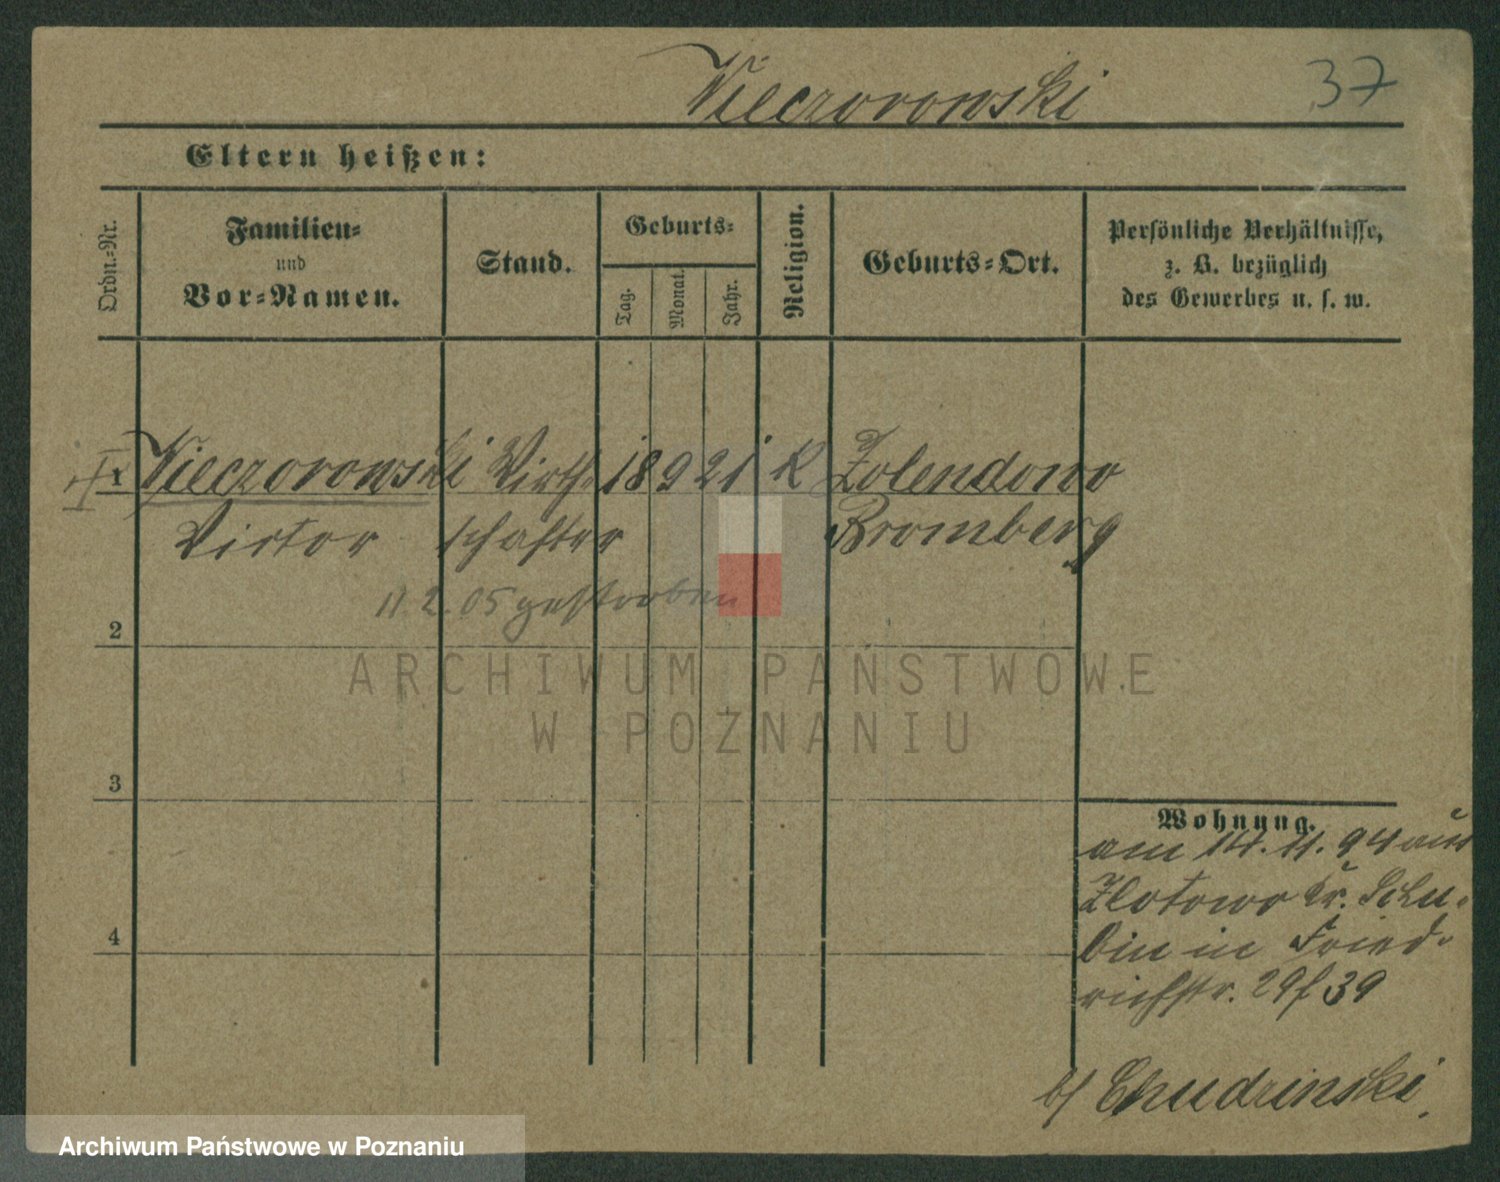 Wieczorowski 37
Eltern heißen:
Ordn.-Nr.
Familien-
und
Vor-Namen.
Stand.
Geburts-
Tag.
Monat.
Jahr.
Religion.
Geburts-Ort.
Persönliche Verhältnisse,
z. B. bezüglich
des Gewerbes u. s. w.
1 Wieczorowski Wirth- 18 9 21 K Zolendowo
Victor schafter Bromberg
11.2.05 gestorben
2
ARCHIWUM PAŃSTWOWE
W POZNANIU
3
Wohnung.
am 14.11.94 aus
Zlotowo Kr. Schu-
bin in Fried-
richstr. 29/39
b/ Chudzinski.
4
Archiwum Państwowe w Poznaniu